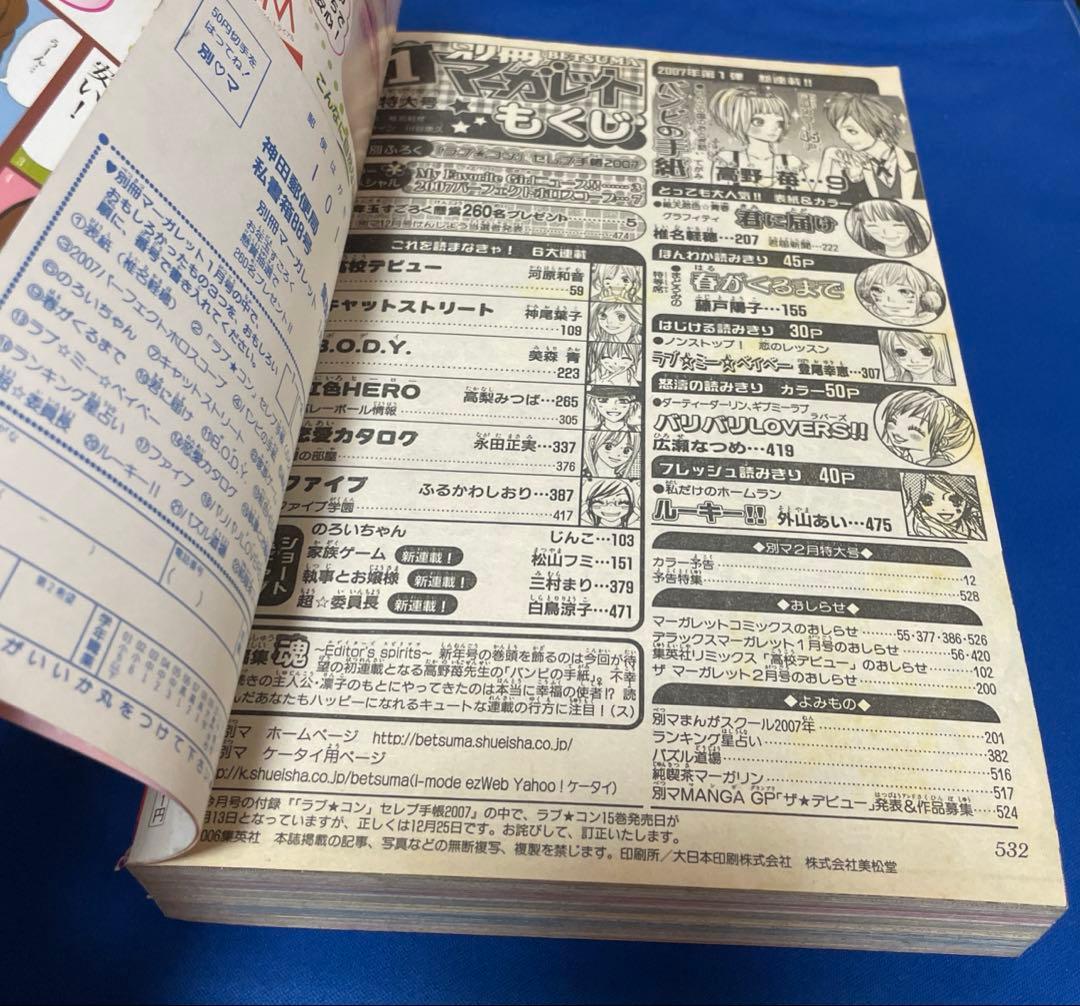 50円切手を
はってね!
別♡マ
安い!
神田郵便局
私書箱88号
別冊マーガレット
お年玉すごろく
懸賞抽選で
260名プレゼント!!
♥別冊マーガレット1月号の中で、
おもしろかったもの3つを、おもしろい
順に、番号で書き入れてください。
①表紙(椎名軽穂)
③2007パーフェクトホロスコープ
⑥のろいちゃん
⑦キャットストリート
春がくるまで
君に届け
B.O.D.Y.
ラブ☆ミー☆ベイベー
恋愛カタログ
ランキング星占い
⑰ファイブ
超☆委員長
⑳ルーキー!!
電話番号
第2希望
学年
職業
がいいか丸をつけて下さい
1
別冊
BETSUMA
マーガレット
特大号
もくじ
別ふろく
ラブ★コン セレブ手帳2007
My Favorite Girlニュース!!…3
2007パーフェクトホロスコープ…7
年玉すごろく懸賞260名プレゼント
5
474
これを読まなきゃ! 6大連載
高校デビュー
河原和音
59
キャットストリート
神尾葉子
109
B.O.D.Y.
美森 青
223
紅色HERO
高梨みつば…265
バレーボール情報
305
恋愛カタログ
永田正実…337
の部屋
376
ファイブ
ふるかわしおり…387
ファイブ学園
417
ショート
のろいちゃん
じんこ…103
家族ゲーム
新連載!
松山フミ…151
執事とお嬢様
新連載!
三村まり…379
超☆委員長
新連載!
白鳥涼子…471
編集魂
~Editor's spirits~ 新年号の巻頭を飾るのは今回が待
望の初連載となる高野苺先生の「バンビの手紙」。不幸
続きの主人公・凛子のもとにやってきたのは本当に幸福の使者!? 読
んだあなたもハッピーになれるキュートな連載の行方に注目!(ス)
別マ ホームページ http://betsuma.shueisha.co.jp/
別マ ケータイ用ページ
http://k.shueisha.co.jp/betsuma(i-mode ezWeb Yahoo!ケータイ)
今月号の付録「「ラブ★コン」セレブ手帳2007」の中で、ラブ★コン15巻発売日が
月13日となっていますが、正しくは12月25日です。お詫びして、訂正いたします。
2006集英社 本誌掲載の記事、写真などの無断複写、複製を禁じます。印刷所/大日本印刷株式会社 株式会社美松堂
2007年第1弾 新連載!!
バンビの手紙
高野 苺…9
とっても大人気!! 表紙&カラー
グラフィティ
君に届け
椎名軽穂…207
君届新聞…222
ほんわか読みきり 45P
春がくるまで
藤戸陽子…155
はじける読みきり 30P
●ノンストップ! 恋のレッスン
ラブ☆ミー☆ベイベー
豊尾幸恵…307
怒濤の読みきり カラー50P
●ダーティーダーリン、ギブミーラブ
バリバリLOVERS!!
ラバーズ
広瀬なつめ…419
フレッシュ読みきり 40P
●私だけのホームラン
ルーキー!!
外山あい…475
◆別マ2月特大号◆
カラー予告
12
予告特集
528
◆おしらせ◆
マーガレットコミックスのおしらせ…55・377・386・526
デラックスマーガレット1月号のおしらせ…56・420
集英社リミックス「高校デビュー」のおしらせ…102
ザ マーガレット2月号のおしらせ…200
◆よみもの◆
別マまんがスクール2007年…201
ランキング星占い…382
パズル道場…516
純喫茶マーガリン…517
別マMANGA GP「ザ★デビュー」発表&作品募集…524
532